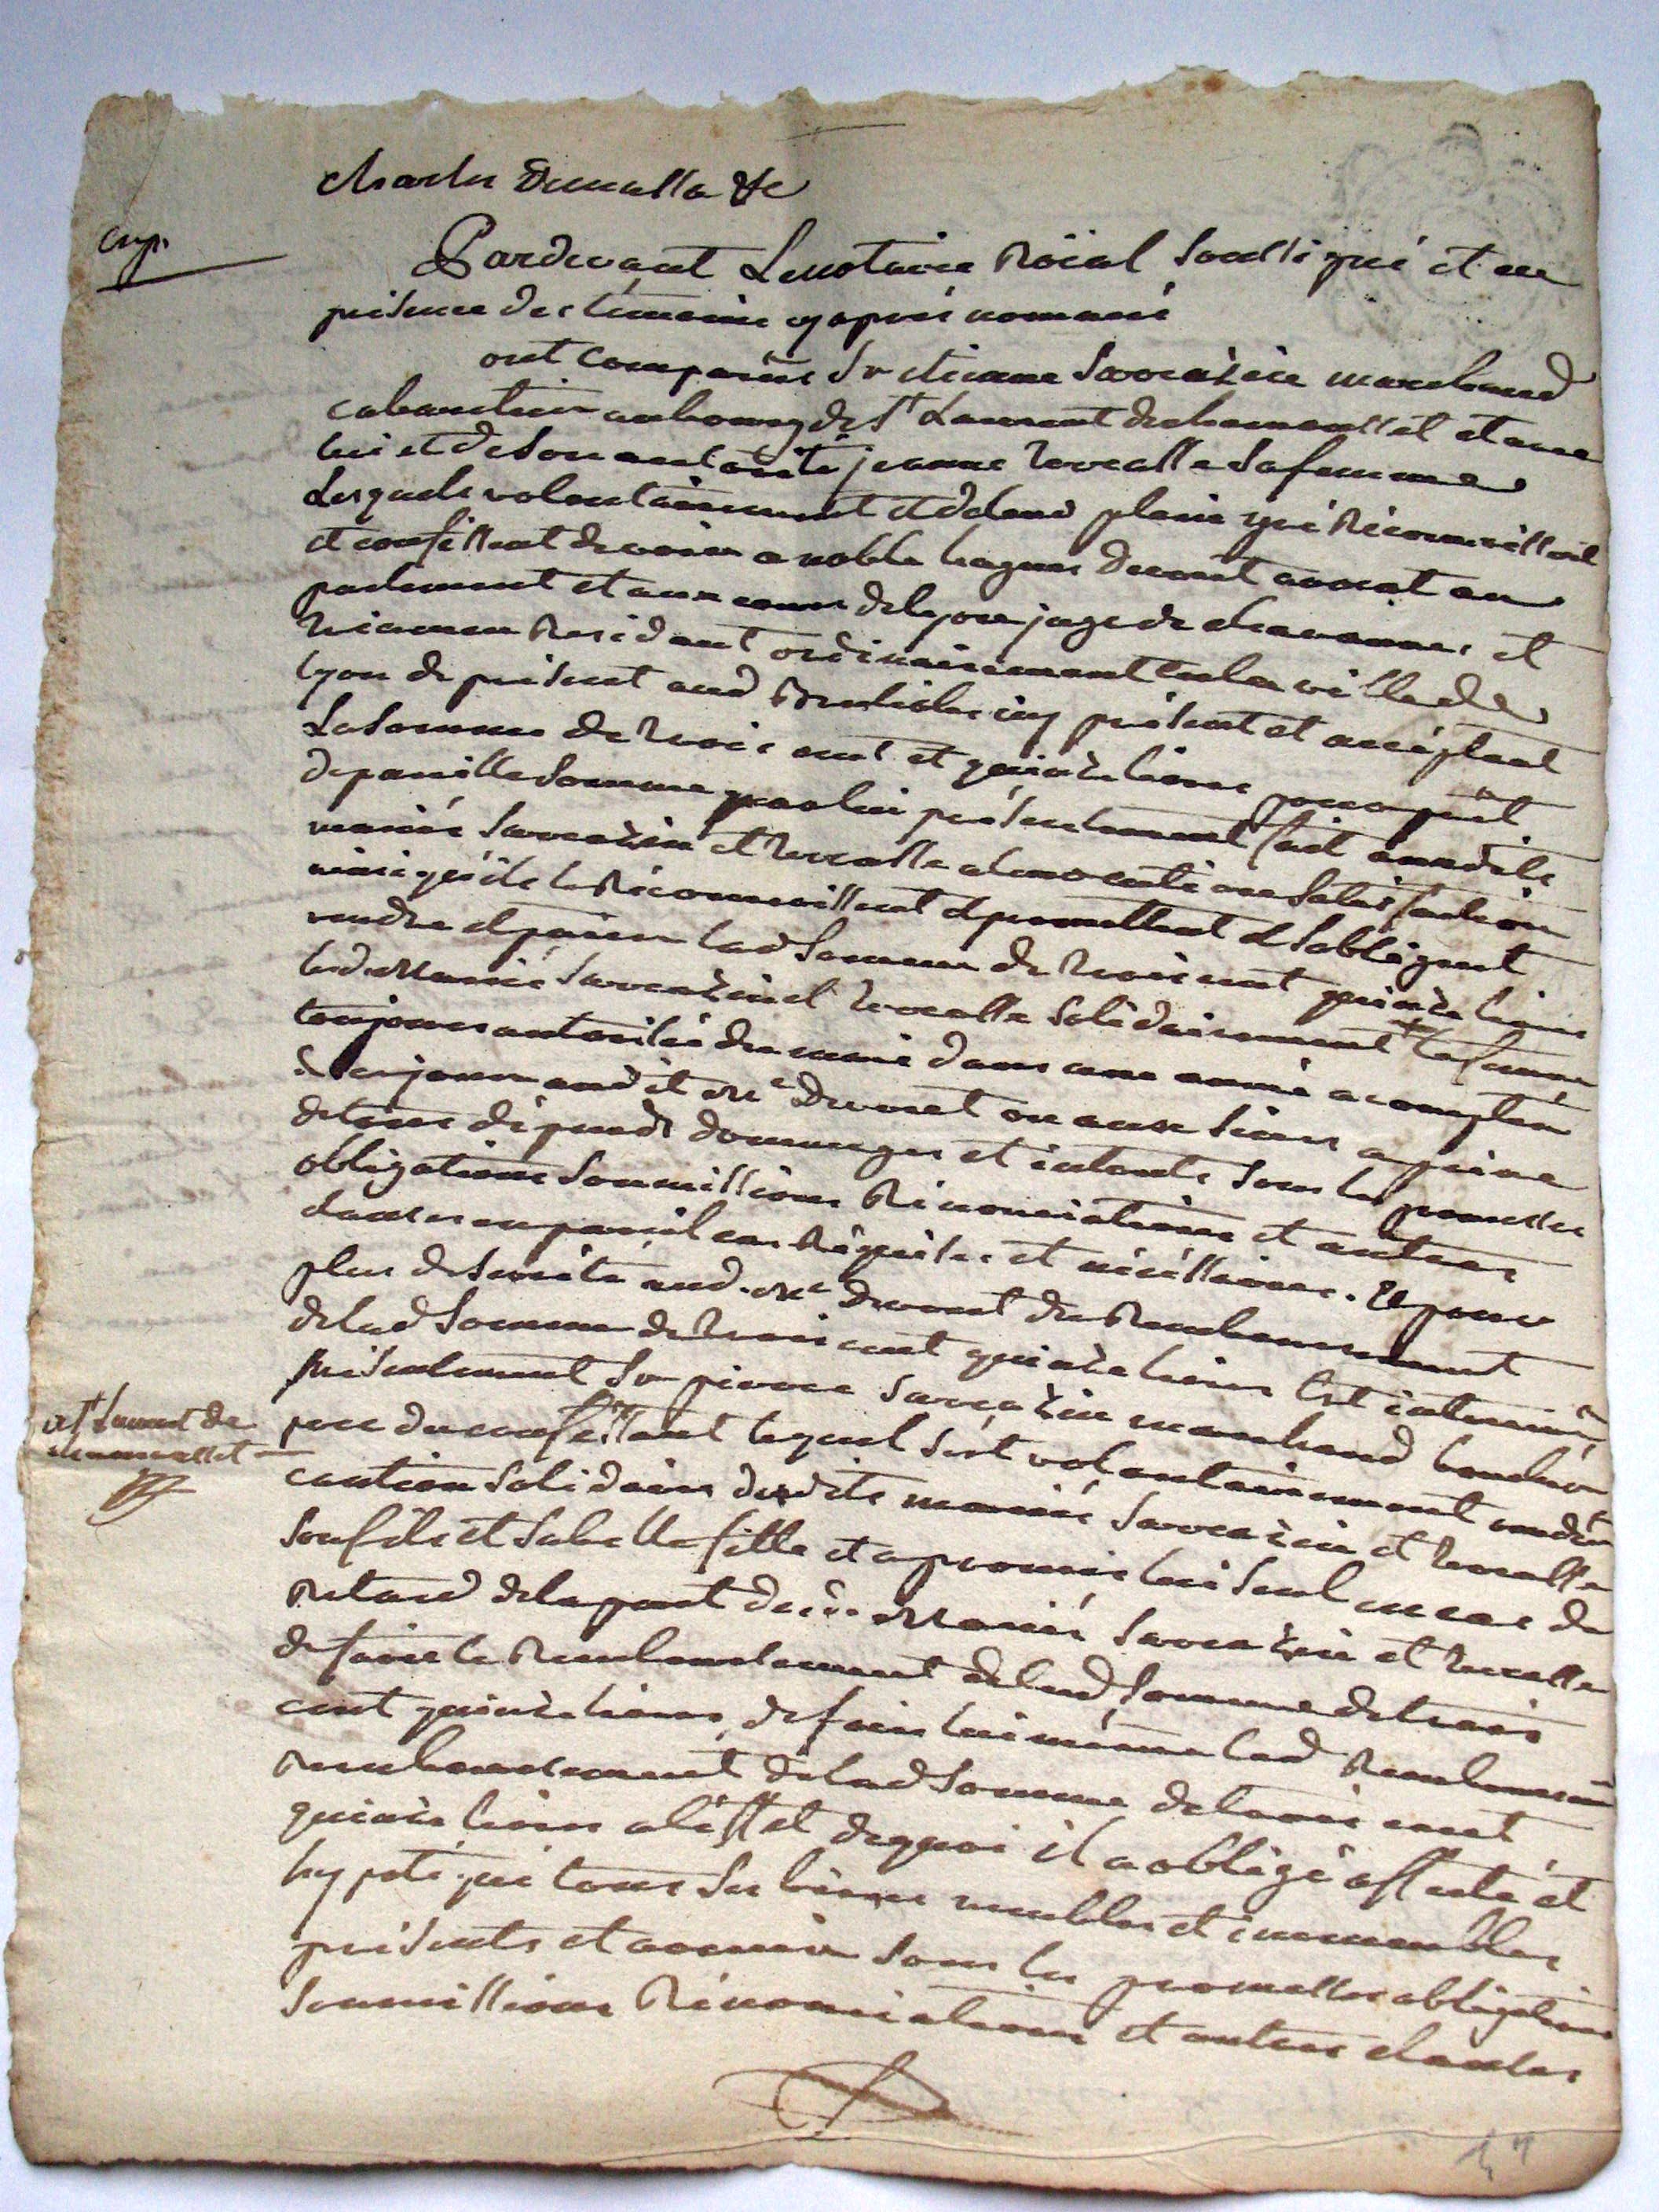 exp.
Pardevant Le notaire Roïal Soussigné et en
présence des témoins cy après nommés
ont comparus Sr etienne Sarrazin marchand
cabaretier au bourg de St Laurent de chamousset et avec
lui et de son authorité jeanne sa femme
Lesquels volontairement et deleur plein gré Reconnoissent
et confessent devoir a noble hugues avocat en
parlement et aux cours de lyon juge de chavannes et
Résidant ordinairement en la ville de
lyon de présent aud cy présent et acceptant
La somme de trois cent et quinze livres pour prêt
de pareille somme par lui présentement fait auxdits
mariés Sarrazin et a leur contentement Satisfaction
ainsi qu'ils le Réconnoissent et promettent et s'obligent
rendre et païer lad Somme de trois cent quinze livres
lesd. Mariés Sarrazin et solidairement la femme
toujours autorisée du mari dans une année a compter
de ce jour audit Me ou aux siens a peine
de tous dépends dommages et interets sous les promesses
obligations Soumissions Rénonciations et autres
clauses en pareil cas Réquises et nécéssaires. Et pour
plus de sureté aud. Me du Remboursement
de lad Somme de trois cent quinze livres Est intervenu
présentement Sr pierre Sarrazin marchand boucher
a St Laurent de chamousset
père du confessant lequel s'est volontairement rendu
caution solidaire desdits mariés Sarrazin et
son fils et sa belle fille et a promis lui seul en cas de
Retard de la part desd. Mariés Sarrazin et
de faire le Remboursement de lad Somme de trois
cent quinze livres, de faire lui même led Remboursement
Remboursement de lad Somme de trois cent
quinze livres a l'éffet de quoi il a obligé affecté et
hypotéqué tous ses biens meubles et immeubles
présents et avenir sous les promesses obligations
Soumissions Rénonciations et autres clauses